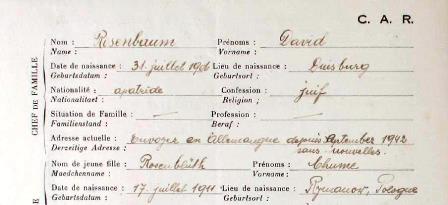 C. A. R.
Nom : Rosenbaum Prénoms : David
Name : Vorname :
Date de naissance : 31. juillet 1906 Lieu de naissance : Duisburg
Geburtsdatum : Geburtsort :
Nationalité : apatride Confession : juif
Nationalitaet : Religion ;
Situation de Famille : — Profession : —
Familienstand : Beraf :
Adresse actuelle : Envoyé en Allemangue depuis September 1942
Derzeilige Adresse : sans nouvelles.
Nom de jeune fille : Rosenblüth Prénoms : Chume
Maedchenname : Vorname :
Date de naissance : 17. juillet 1911 Lieu de naissance : Rymanow, Pologne
Geburtsdatum : Geburtsort :
CHEF DE FAMILLE